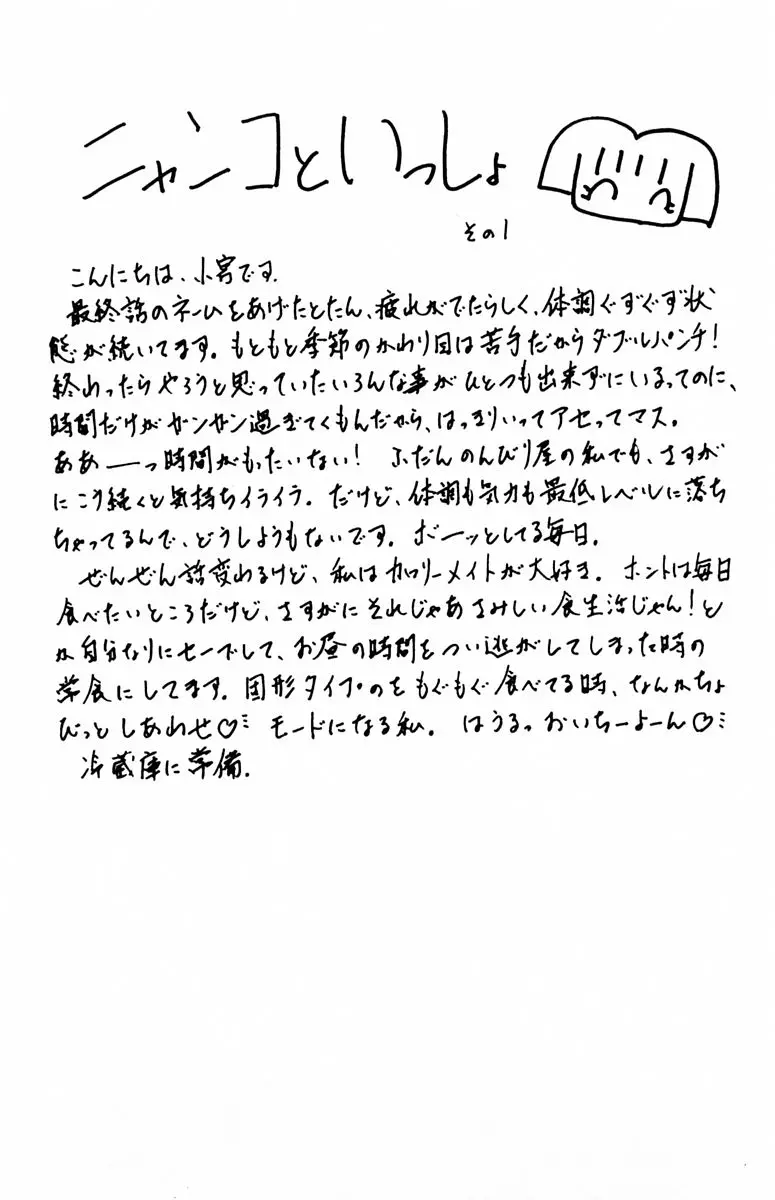 ニャンコといっしょ
その1
こんにちは、小宮です.
最終話のネームをあげたとたん、疲れがでたらしく、体調ぐずぐず状
態が続いてます。もともと季節のかわり目は苦手だからダブルパンチ!
終わったらやろうと思っていたいろんな事がひとつも出来ずにいるってのに、
時間だけがガンガン過ぎてくもんだから、はっきりいってアセってマス。
ああ――っ時間がもったいない! ふだんのんびり屋の私でも、さすが
にこう続くと気持ちイライラ。だけど、体調も気力も最低レベルに落ち
ちゃってるんで、どうしようもないです。ボーッとしてる毎日.
ぜんぜん話変わるけど、私はカロリーメイトが大好き。ホントは毎日
食べたいところだけど、さすがにそれじゃあさみしい食生活じゃん!と
か自分なりにセーブして、お昼の時間をつい逃がしてしまった時の
常食にしてます。固形タイプのをもぐもぐ食べてる時、なんかちょ
びっとしあわせ♡ モードになる私。はうるっおいちーよーん♡
冷蔵庫に常備.